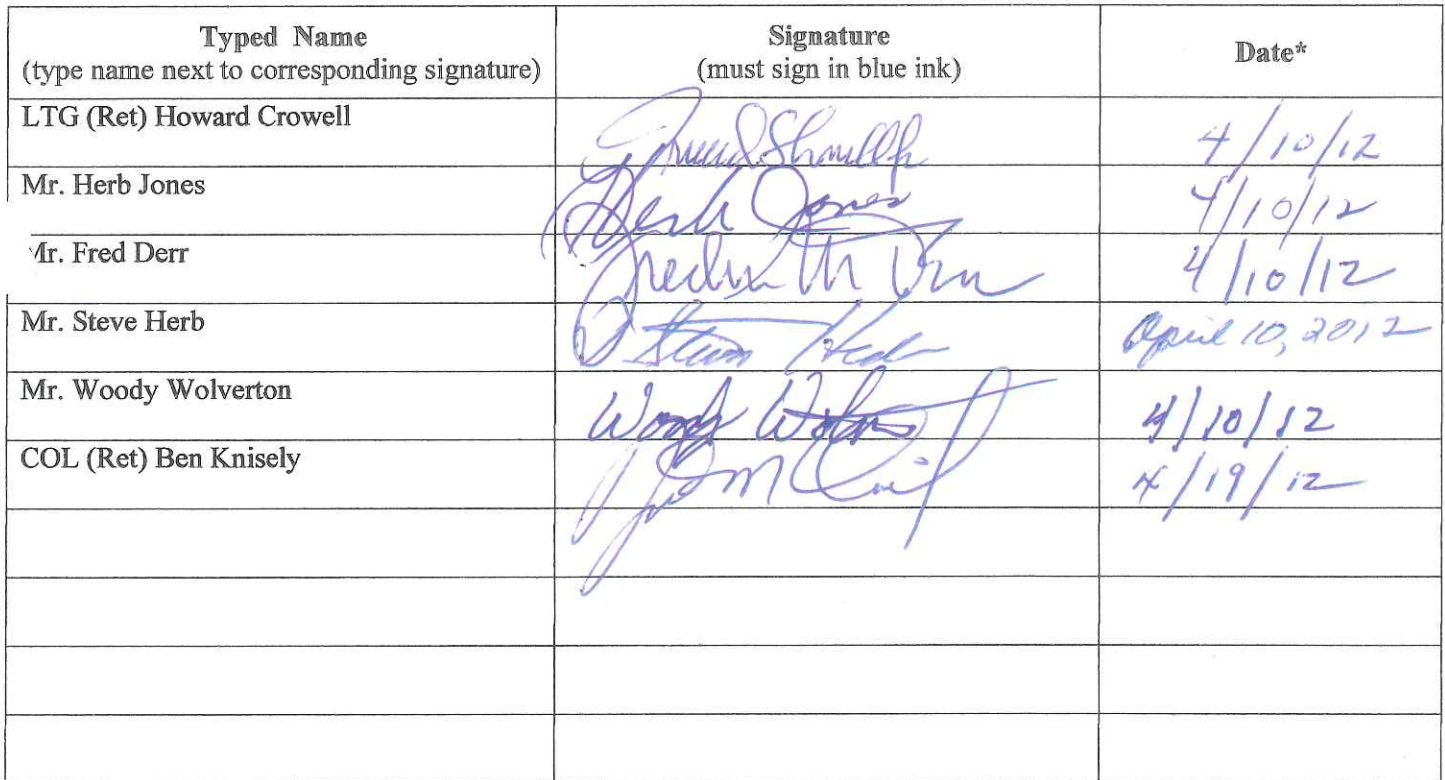 Typed Name
(type name next to corresponding signature)
Signature
(must sign in blue ink)
Date*
LTG (Ret) Howard Crowell
4/10/12
Mr. Herb Jones
Herb Jones
4/10/12
Mr. Fred Derr
4/10/12
Mr. Steve Herb
April 10, 2012
Mr. Woody Wolverton
Woody
4/10/12
COL (Ret) Ben Knisely
4/19/12